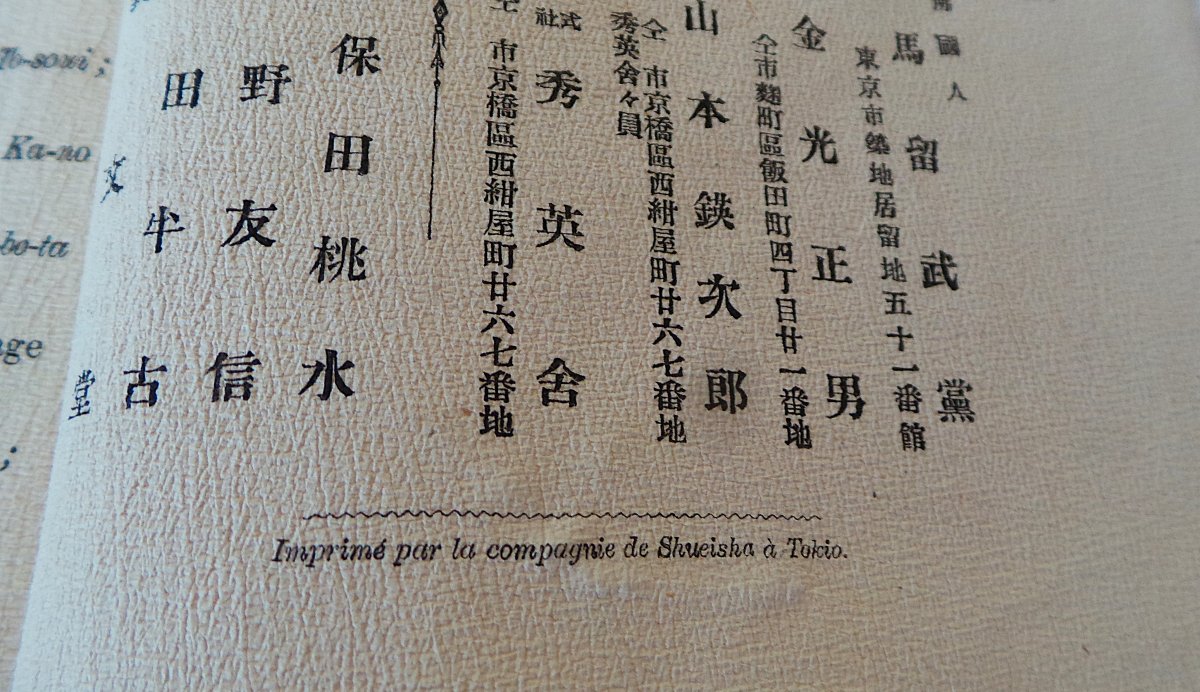 國人
馬留武黨
東京市築地居留地五十一番館
金光正男
仝市麴町區飯田町四丁目廿一番地
山本鍈次郎
仝市京橋區西紺屋町廿六七番地
秀英舍々員
式社
秀英舍
仝市京橋區西紺屋町廿六七番地
保田桃水
野友信
田半古
文堂
Imprimé par la compagnie de Shueisha à Tokio.
Ka-no
bo-ta
age
;